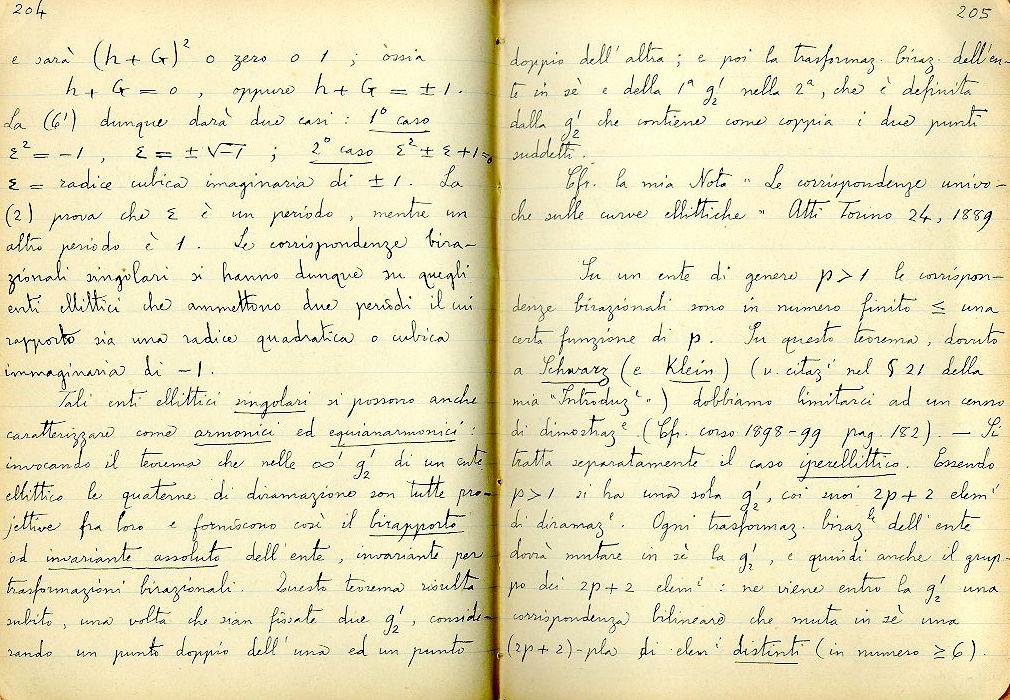 204
e sarà (h + G)² o zero o 1 ; ossia
h + G = 0 , oppure h + G = ± 1 .
La (6') dunque darà due casi : 1° caso
ε² = -1 , ε = ± √-1 ; 2° caso ε² ± ε + 1 = 0
ε = radice cubica imaginaria di ± 1 . La
(2) prova che ε è un periodo , mentre un
altro periodo è 1 . Le corrispondenze bira-
zionali singolari si hanno dunque su quegli
enti ellittici che ammettono due periodi il cui
rapporto sia una radice quadratica o cubica
immaginaria di -1 .
Tali enti ellittici singolari si possono anche
caratterizzare come armonici ed equianarmonici :
invocando il teorema che nelle ∞¹ g₂¹ di un ente
ellittico le quaterne di diramazione son tutte pro-
jettive fra loro e forniscono così il birapporto
od invariante assoluto dell'ente , invariante per
trasformazioni birazionali . Questo teorema risulta
subito , una volta che sian fissate due g₂¹ , conside-
rando un punto doppio dell'una ed un punto
205
doppio dell'altra ; e poi la trasformaz. biraz. dell'en-
te in sè e della 1ª g₂¹ nella 2ª , che è definita
dalla g₂¹ che contiene come coppia i due punti
suddetti .
Cfr. la mia Nota " Le corrispondenze univo-
che sulle curve ellittiche " Atti Torino 24 , 1889
Su un ente di genere p > 1 le corrispon-
denze birazionali sono in numero finito ≤ una
certa funzione di p . Su questo teorema , dovuto
a Schwarz (e Klein) (v. citazⁱ nel § 21 della
mia "Introduzᵉ") dobbiamo limitarci ad un cenno
di dimostrazᵉ . (Cfr. corso 1898-99 pag. 182) . — Si
tratta separatamente il caso iperellittico . Essendo
p > 1 si ha una sola g₂¹ , coi suoi 2p + 2 elemⁱ
di diramazᵉ . Ogni trasformaz. birazˡᵉ dell'ente
dovrà mutare in sè la g₂¹ , e quindi anche il grup-
po dei 2p + 2 elemⁱ : ne viene entro la g₂¹ una
corrispondenza bilineare che muta in sè una
(2p + 2)-pla di elemⁱ distinti (in numero ≥ 6) .